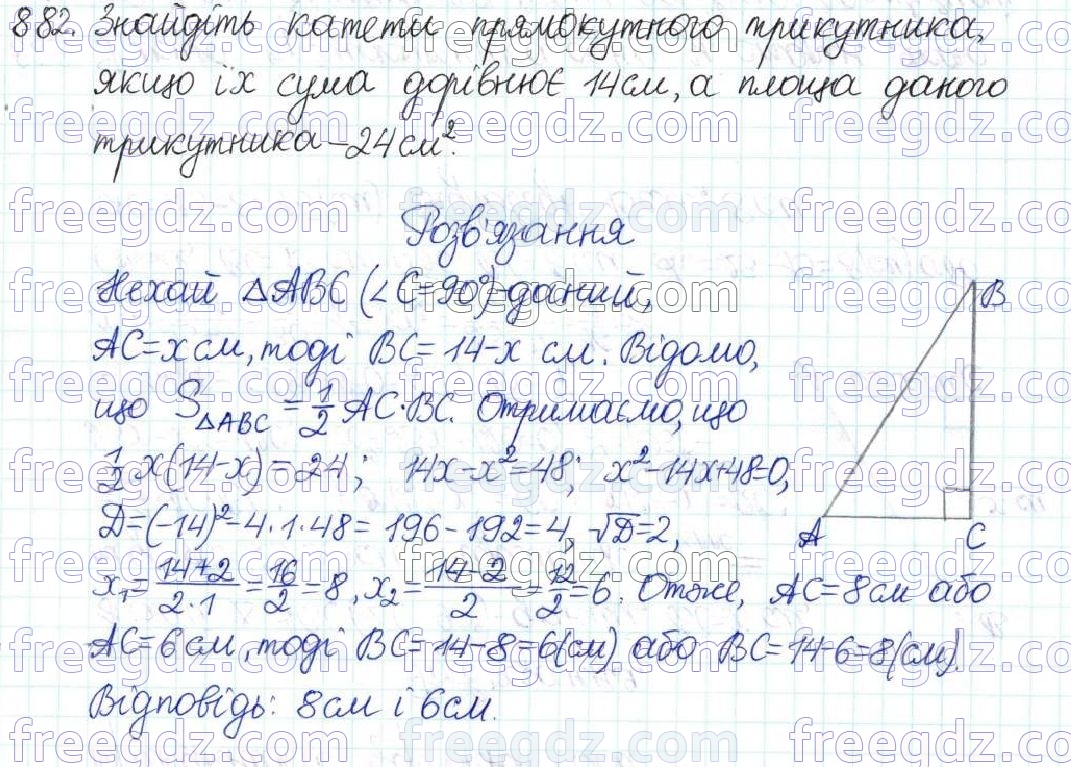 882. Знайдіть катети прямокутного трикутника,
якщо їх сума дорівнює 14 см, а площа даного
трикутника – 24 см².
Розв'язання
Нехай △ABC (∠C=90°) – даний,
AC = x см, тоді BC = 14-x см. Відомо,
що S△ABC = 1/2 AC·BC. Отримаємо, що
1/2 x(14-x) = 24; 14x-x²=48; x²-14x+48=0;
D=(-14)²-4·1·48= 196-192=4, √D=2,
x₁= (14+2)/(2·1) = 16/2 = 8, x₂= (14-2)/2 = 12/2 = 6. Отже, AC=8 см або
AC=6 см, тоді BC=14-8=6(см) або BC=14-6=8(см).
Відповідь: 8 см і 6 см.
B
A
C
freegdz.com